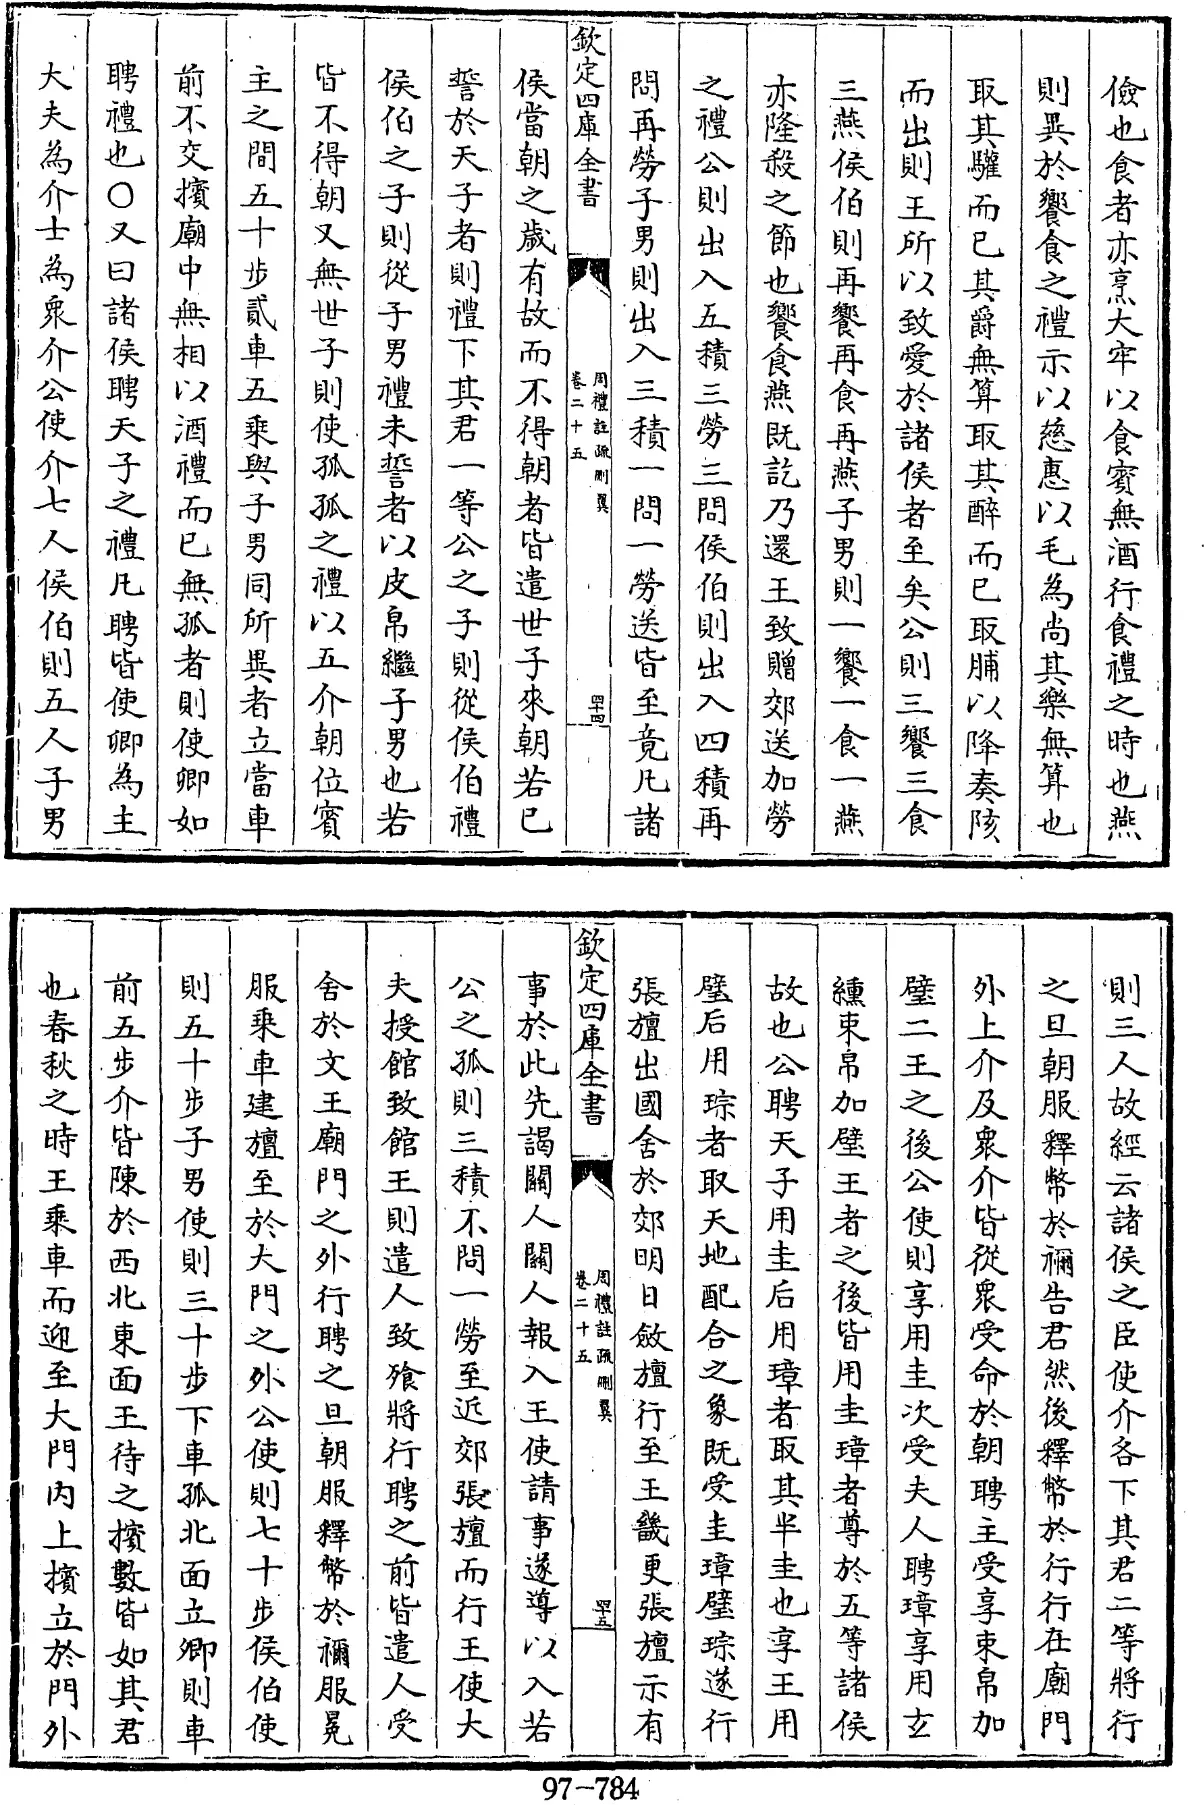 儉也食者亦烹大牢以食賓無酒行食禮之時也燕
則異於饗食之禮示以慈惠以毛為尚其樂無算也
取其驩而已其爵無算取其醉而已取脯以降奏陔
而出則王所以致愛於諸侯者至矣公則三饗三食
三燕侯伯則再饗再食再燕子男則一饗一食一燕
亦隆殺之節也饗食燕既訖乃還王致贈郊送加勞
之禮公則出入五積三勞三問侯伯則出入四積再
問再勞子男則出入三積一問一勞送皆至竟凡諸
欽定四庫全書
周禮註疏刪翼
卷二十五
四十四
侯當朝之歲有故而不得朝者皆遣世子來朝若已
誓於天子者則禮下其君一等公之子則從侯伯禮
侯伯之子則從子男禮未誓者以皮帛繼子男也若
皆不得朝又無世子則使孤孤之禮以五介朝位賓
主之間五十步貳車五乘與子男同所異者立當車
前不交擯廟中無相以酒禮而已無孤者則使卿如
聘禮也○又曰諸侯聘天子之禮凡聘皆使卿為主
大夫為介士為衆介公使介七人侯伯則五人子男
則三人故經云諸侯之臣使介各下其君二等將行
之旦朝服釋幣於禰告君然後釋幣於行行在廟門
外上介及衆介皆從衆受命於朝聘主受享束帛加
璧二王之後公使則享用圭次受夫人聘璋享用玄
纁束帛加璧王者之後皆用圭璋者尊於五等諸侯
故也公聘天子用圭后用璋者取其半圭也享王用
璧后用琮者取天地配合之象既受圭璋璧琮遂行
張旜出國舍於郊明日斂旜行至王畿更張旜示有
欽定四庫全書
周禮註疏刪翼
卷二十五
四十五
事於此先謁關人關人報入王使請事遂導以入若
公之孤則三積不問一勞至近郊張旜而行王使大
夫授館致館王則遣人致飱將行聘之前皆遣人受
舍於文王廟門之外行聘之旦朝服釋幣於禰服冕
服乘車建旜至於大門之外公使則七十步侯伯使
則五十步子男使則三十步下車孤北面立卿則車
前五步介皆陳於西北東面王待之擯數皆如其君
也春秋之時王乘車而迎至大門内上擯立於門外
97-784